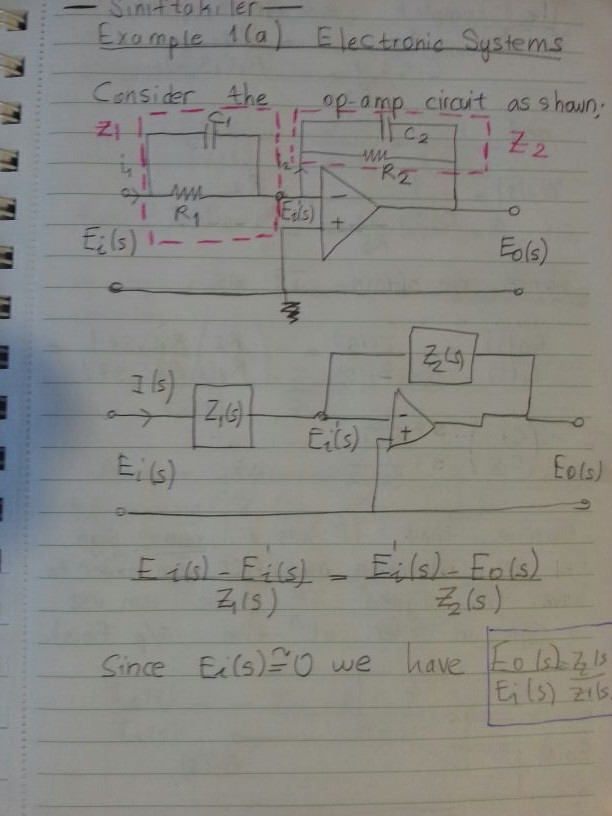 — Sinıftakiler —
Example 1(a) Electronic Systems
Consider the op-amp circuit as shown:
Z1 C1 C2 Z2
i1 i2 R2
R1 Ei'(s) - +
Ei(s) Eo(s)
Z2(s)
I(s)
Z1(s) Ei'(s) - +
Ei(s) Eo(s)
Ei(s) - Ei'(s) = Ei'(s) - Eo(s)
Z1(s) Z2(s)
Since Ei(s) ≅ 0 we have Eo(s) = Z2(s
Ei(s) Z1(s